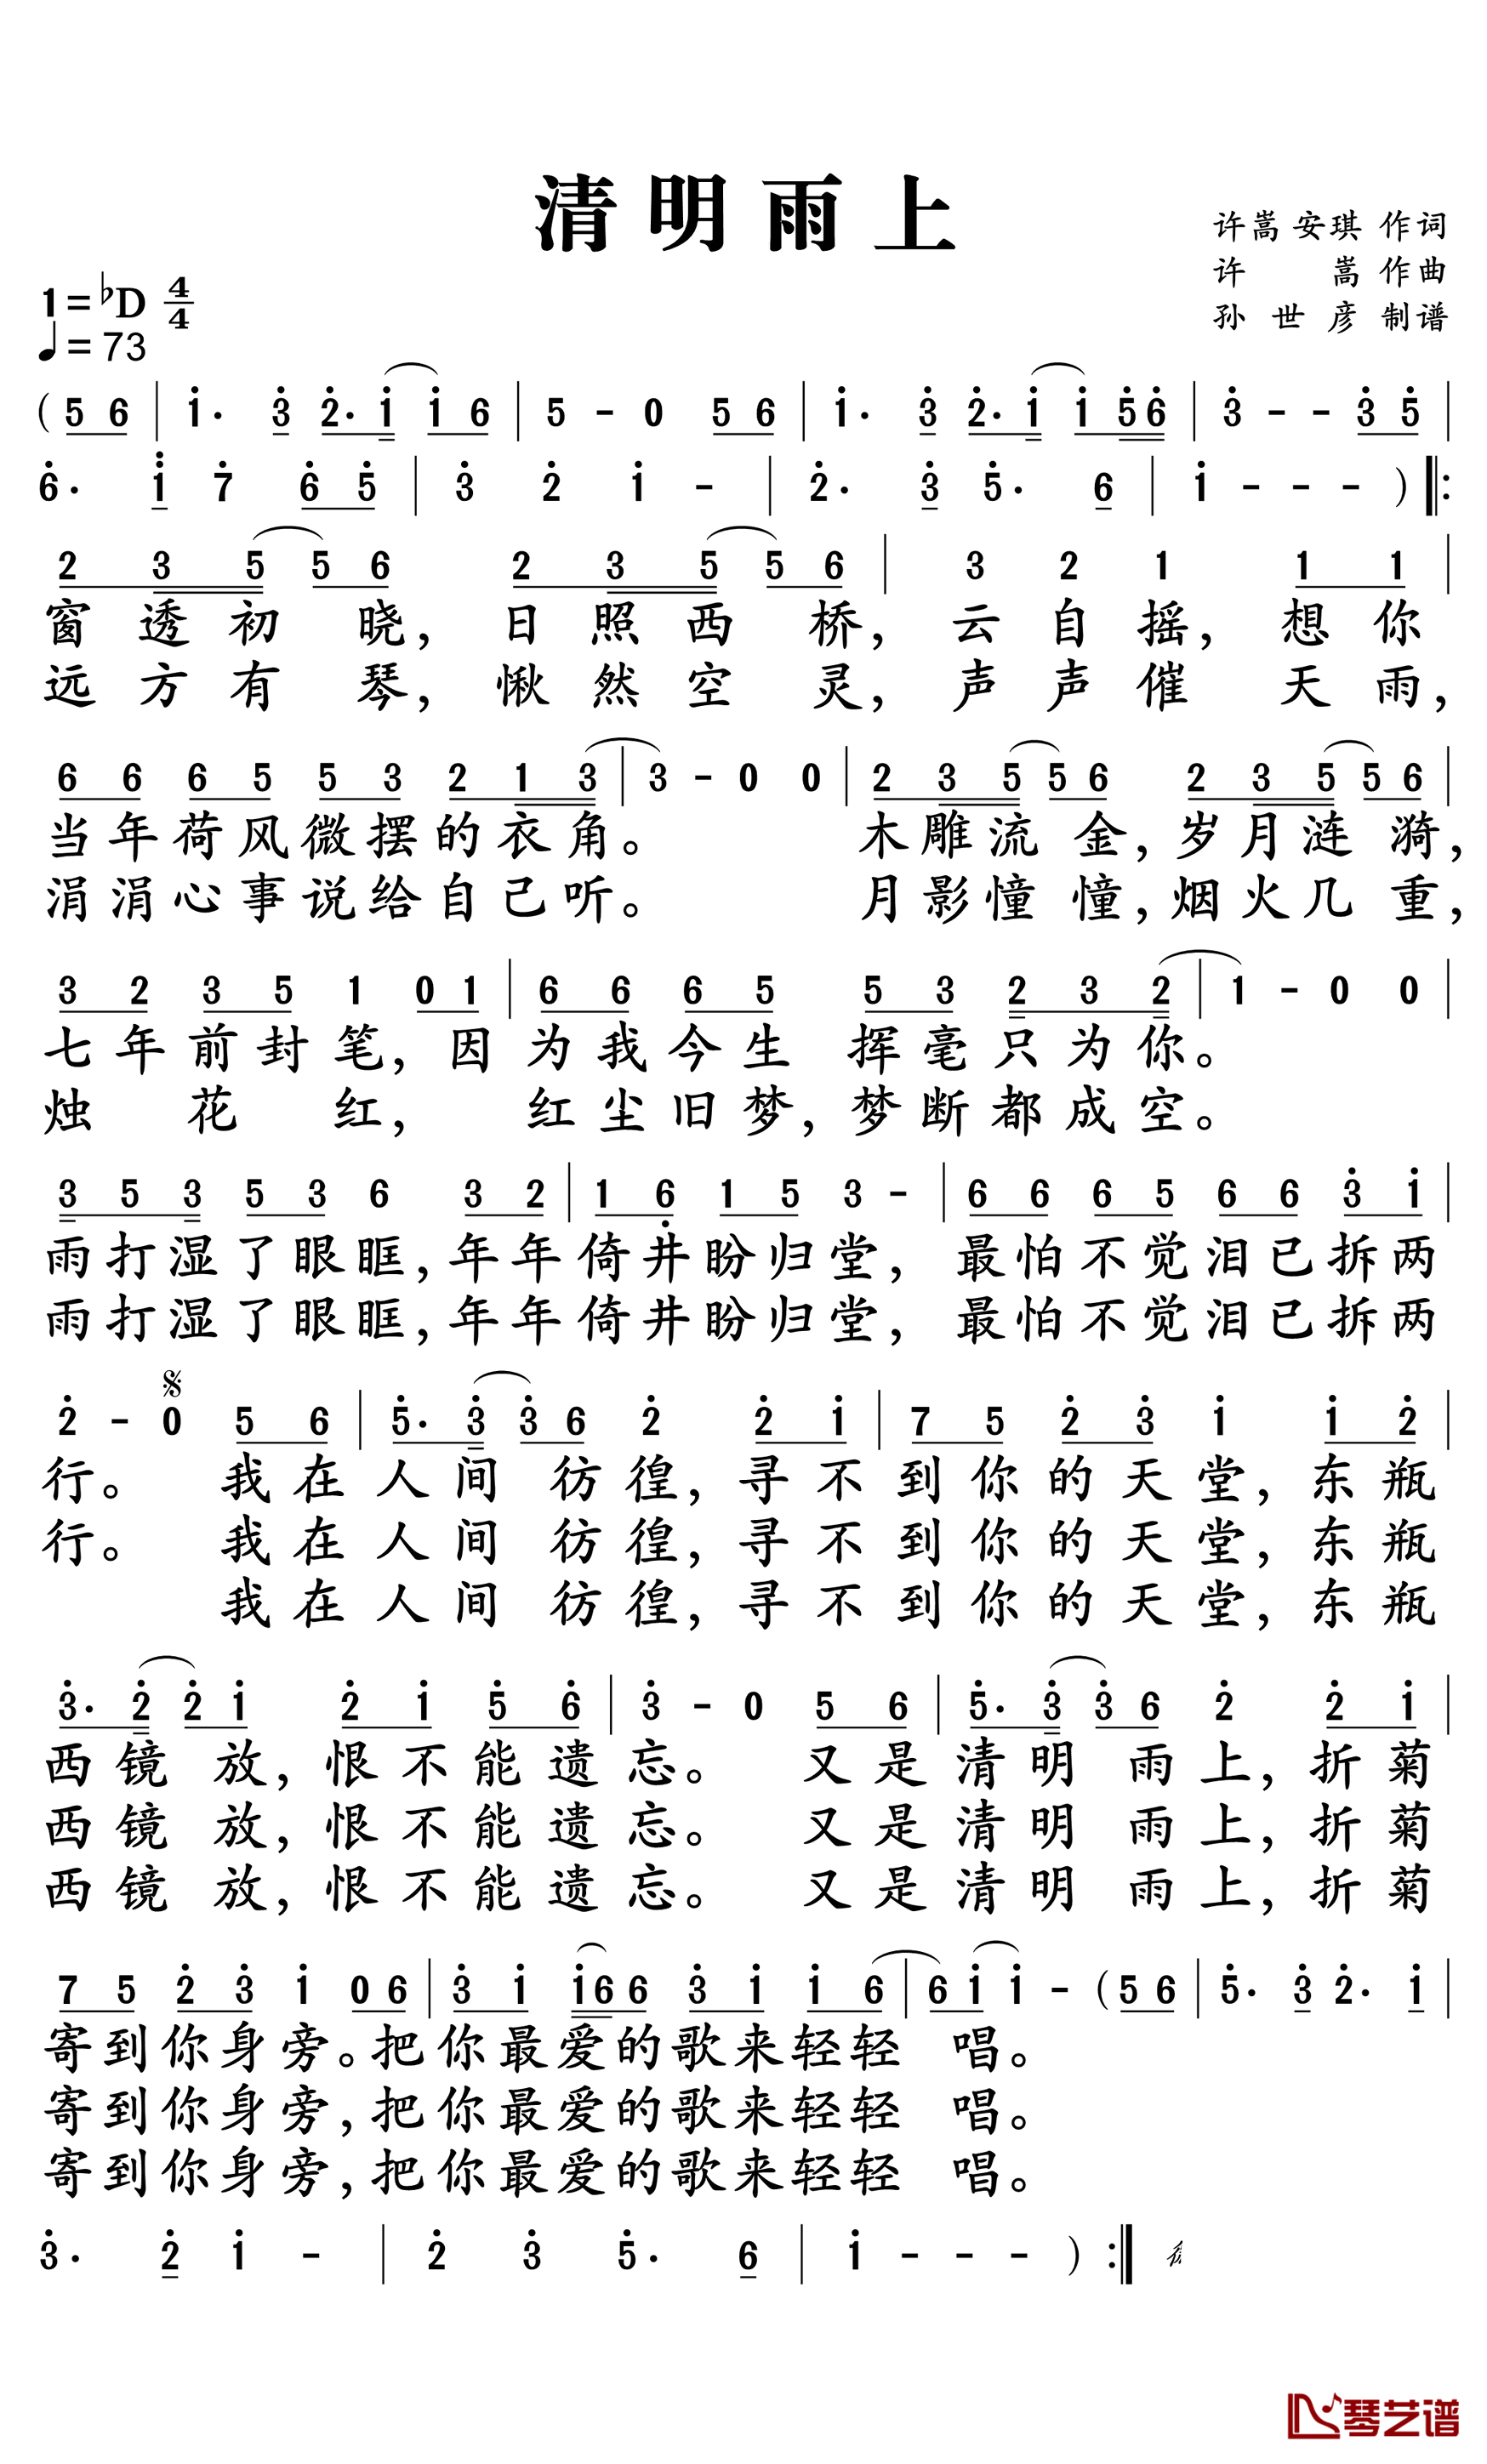 清明雨上
许嵩 安琪 作词
许 嵩 作曲
孙世彦 制谱
1=♭D 4/4
♩=73
( 5 6 | 1̇· 3̇ 2̇· 1̇ 1̇ 6 | 5 - 0 5 6 | 1̇· 3̇ 2̇· 1̇ 1̇ 5̇ 6̇ | 3̇ - - 3̇ 5̇ |
6̇· 1̈ 7̇ 6̇ 5̇ | 3̇ 2̇ 1̇ - | 2̇· 3̇ 5̇· 6 | 1̇ - - - ) ‖:
2 3 5 5 6 2 3 5 5 6 | 3 2 1 1 1 |
窗透初晓，日照西桥，云自摇，想你
远方有琴，愀然空灵，声声催天雨，
6 6 6 5 5 3 2 1 3 | 3 - 0 0 | 2 3 5 5 6 2 3 5 5 6 |
当年荷风微摆的衣角。木雕流金，岁月涟漪，
涓涓心事说给自己听。月影憧憧，烟火几重，
3 2 3 5 1 0 1 | 6 6 6 5 5 3 2 3 2 | 1 - 0 0 |
七年前封笔，因为我今生挥毫只为你。
烛花红，红尘旧梦，梦断都成空。
3 5 3 5 3 6 3 2 | 1 6̣ 1 5 3 - | 6 6 6 5 6 6 3̇ 1̇ |
雨打湿了眼眶，年年倚井盼归堂，最怕不觉泪已拆两
雨打湿了眼眶，年年倚井盼归堂，最怕不觉泪已拆两
2̇ - 𝄋 0 5 6 | 5̇· 3̇ 3̇ 6 2̇ 2̇ 1̇ | 7 5 2̇ 3̇ 1̇ 1̇ 2̇ |
行。我在人间彷徨，寻不到你的天堂，东瓶
行。我在人间彷徨，寻不到你的天堂，东瓶
我在人间彷徨，寻不到你的天堂，东瓶
3̇· 2̇ 2̇ 1̇ 2̇ 1̇ 5̇ 6̇ | 3̇ - 0 5 6 | 5̇· 3̇ 3̇ 6 2̇ 2̇ 1̇ |
西镜放，恨不能遗忘。又是清明雨上，折菊
西镜放，恨不能遗忘。又是清明雨上，折菊
西镜放，恨不能遗忘。又是清明雨上，折菊
7 5 2̇ 3̇ 1̇ 0 6 | 3̇ 1̇ 1̇ 6 6 3̇ 1̇ 1̇ 6 | 6 1̇ 1̇ - ( 5 6 | 5̇· 3̇ 2̇· 1̇ |
寄到你身旁。把你最爱的歌来轻轻唱。
寄到你身旁，把你最爱的歌来轻轻唱。
寄到你身旁，把你最爱的歌来轻轻唱。
3̇· 2̇ 1̇ - | 2̇ 3̇ 5̇· 6 | 1̇ - - - ) :‖
琴艺谱